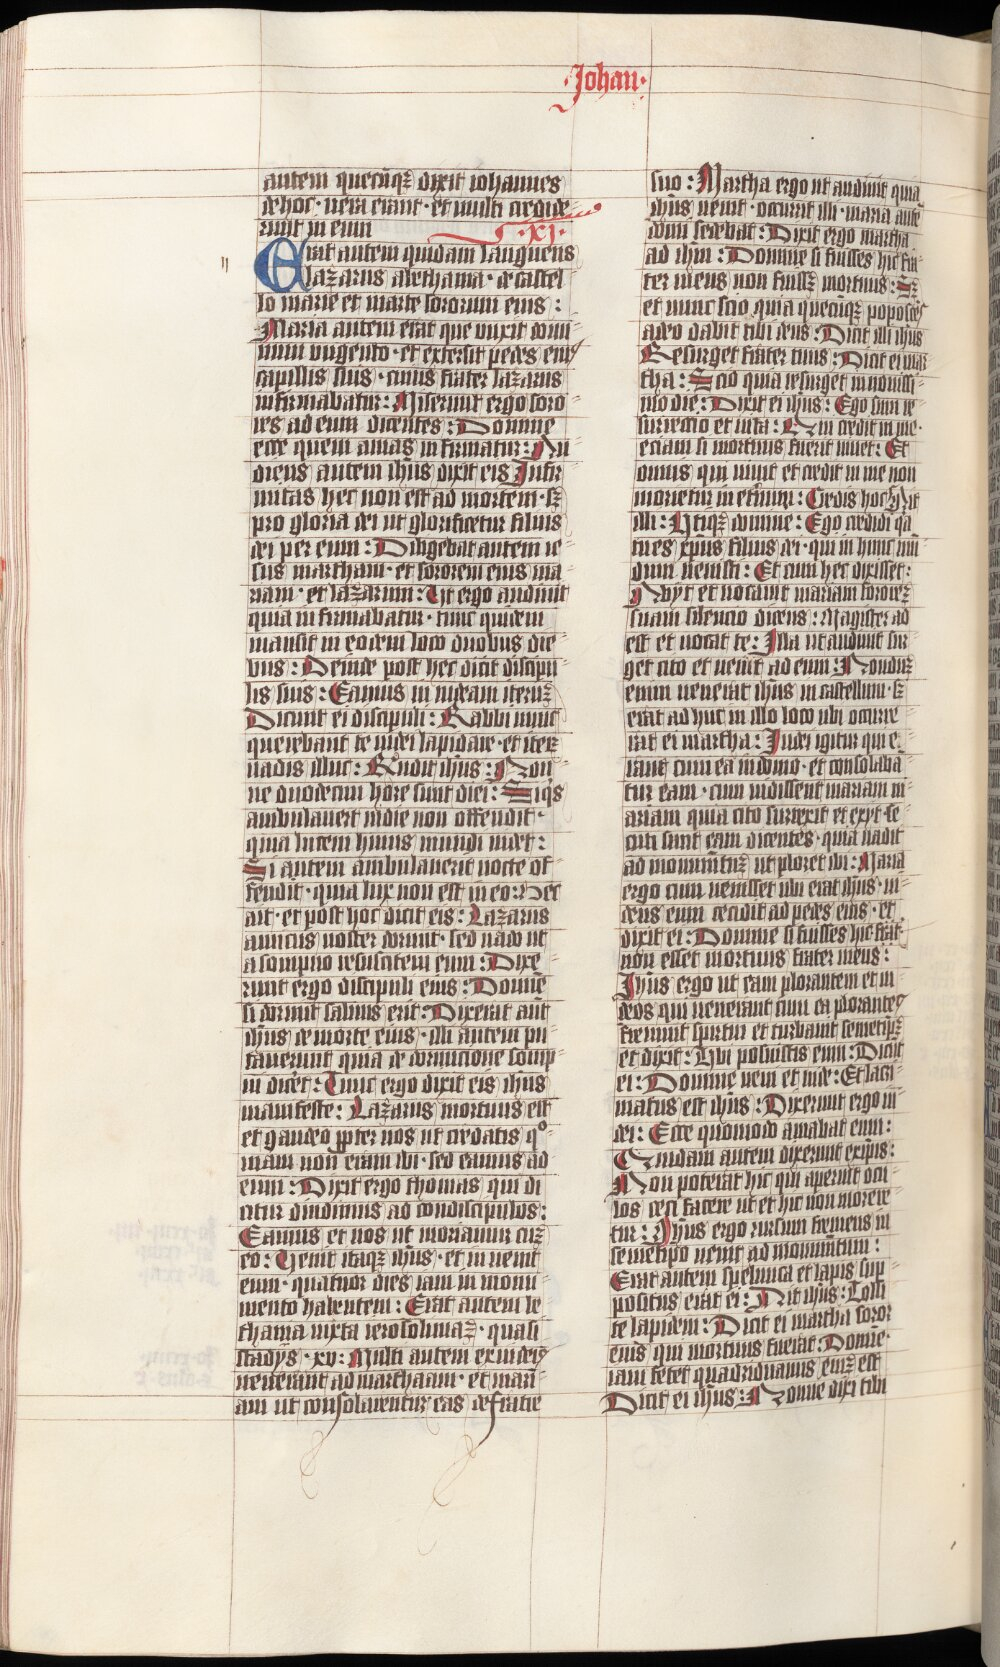 Johan·
autem quecūqꝫ dixit iohannes
de hoc · uera erant · et multi credide
runt in eum
·xj·
Erat autem quidam languens
lazarus a bethania · de castel
lo marie et marte sororum eius :
Maria autem erat que vnxit domi
num vngento · et extersit pedes eiꝰ
capillis suis · cuius frater lazarus
infirmabatur : Miserunt ergo soro
res ad eum dicentes : Domine
ecce quem amas infirmatur : Au
diens autem ihūs dixit eis Infir
mitas hec non est ad mortem · sꝫ
pro gloria dei ut glorificetur filius
dei per eum : Diligebat autem ie
sus martham · et sororem eius ma
riam · et lazarum : Ut ergo audiuit
quia infirmabatur · tunc quidem
mansit in eodem loco duobus die
bus : Deinde post hec dicit discipu
lis suis : Eamus in iudeam iterūꝫ
Dicunt ei discipuli : Rabbi nunc
querebant te iudei lapidare · et iteꝝ
uadis illuc : Rn̄dit ihūs : Non
ne duodecim hore sunt diei : Siqs
ambulauerit in die non offendit ·
quia lucem huius mundi uidet :
Si autem ambulauerit nocte of
fendit · quia lux non est in eo : Hec
ait · et post hoc dicit eis : Lazarus
amicus noster dormit · sed uado ut
a sompno resuscitem eum : Dixe
runt ergo discipuli eius : Domie
si dormit saluus erit : Dixerat aut̄
ihūs de morte eius · illi autem pu
tauerunt quia de dormicione somp
ni dic̄et : Tunc ergo dixit eis ihūs
manifeste : Lazarus mortuus est
et gaudeo ꝓpter uos ut credatis qº
niam non eram ibi · sed eamus ad
eum : Dixit ergo thomas qui di
citur didimus ad condiscipulos :
Eamus et nos ut moriamur cūꝫ
eo : Uenit itaqꝫ ihūs · et inuenit
eum · quatuor dies iam in monu
mento habentem : Erat autem be
thania iuxta ierosolimaꝫ · quasi
stadijs · xv : Multi autem ex iudeis
uenerant ad martham · et mari
am ut consolarentur eas de fratre
suo : Martha ergo ut audiuit quia
ihūs uenit · occurrit illi · maria aute
domi sedebat : Dixit ergo martha
ad ihm̄ : Domine si fuisses hic fra
ter meus non fuissꝫ mortuus : Sꝫ
et nunc scio quia quecūqꝫ poposceꝰ
a deo dabit tibi deus : Dicit illi ihūs
Resurget frater tuus : Dicit ei mar
tha : Scio quia resurget in nouissi
mo die : Dixit ei ihūs : Ego sum re
surrectio et uita : Qui credit in me ·
eciam si mortuus fuerit uiuet : Et
omnis qui uiuit et credit in me non
morietur in etnum : Credis hoc Ait
illi : Utiqꝫ domine : Ego credidi qa
tu es xp̄us filius dei · qui in hunc mū
dum uenisti : Et cum hec dixisset :
Abyt et uocauit mariam sororeꝫ
suam silencio dicens : Magister ad
est et uocat te : Illa ut audiuit sur
get cito et uenit ad eum : Nonduꝫ
enim uenerat ihūs in castellum · sꝫ
erat ad huc in illo loco ubi occurre
rat ei martha : Iudei igitur qui e
rant cum ea in domo · et consolaba
tur eam · cum uidissent mariam m
ariam quia cito surrexit et exyt · se
cuti sunt eam dicentes · quia uadit
ad monumētuꝫ ut ploret ibi : Maria
ergo cum uenisset ubi erat ihūs · ui
dens eum cecidit ad pedes eius · et
dixit ei : Domine si fuisses hic frat̄
non esset mortuus frater meus :
Ihūs ergo ut eam plorantem et iu
deos qui uenerant cum ea plorantes
fremuit spiritu et turbauit semetipꝫ
et dixit : Ubi posuistis eum : Dicūt
ei : Domine ueni et uide : Et lacri
matus est ihūs : Dixerunt ergo iu
dei : Ecce quomodo amabat eum :
Quidam autem dixerunt ex ip̄is :
Non poterat hic qui aperuit ocu
los ceci facere ut et hic non morere
tur : Ihūs ergo rursum fremens in
semetipo uenit ad monumētum :
Erat autem spelunca et lapis sup
positus erat ei : Ait ihūs : Tolli
te lapidem : Dicit ei martha soror
eius qui mortuus fuerat : Domīe ·
iam fetet quadriduanus eniꝫ est
Dicit ei ihūs : Nonne dixi tibi